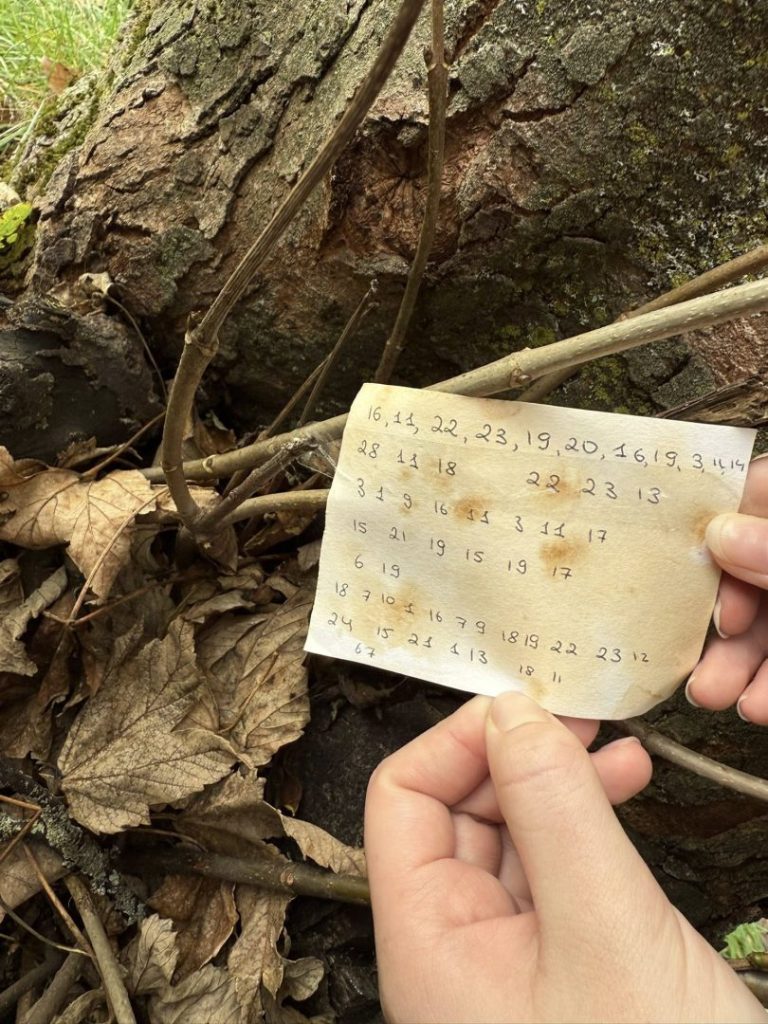 16, 11, 22, 23, 19, 20, 16, 19, 3, 11, 14
28 11 18 22 23 13
31 9 16 11 3 11 17
15 21 19 15 19 17
6 19
18 7 10 1 16 7 9 18 19 22 23 12
24 15 21 1 13 18 11
67